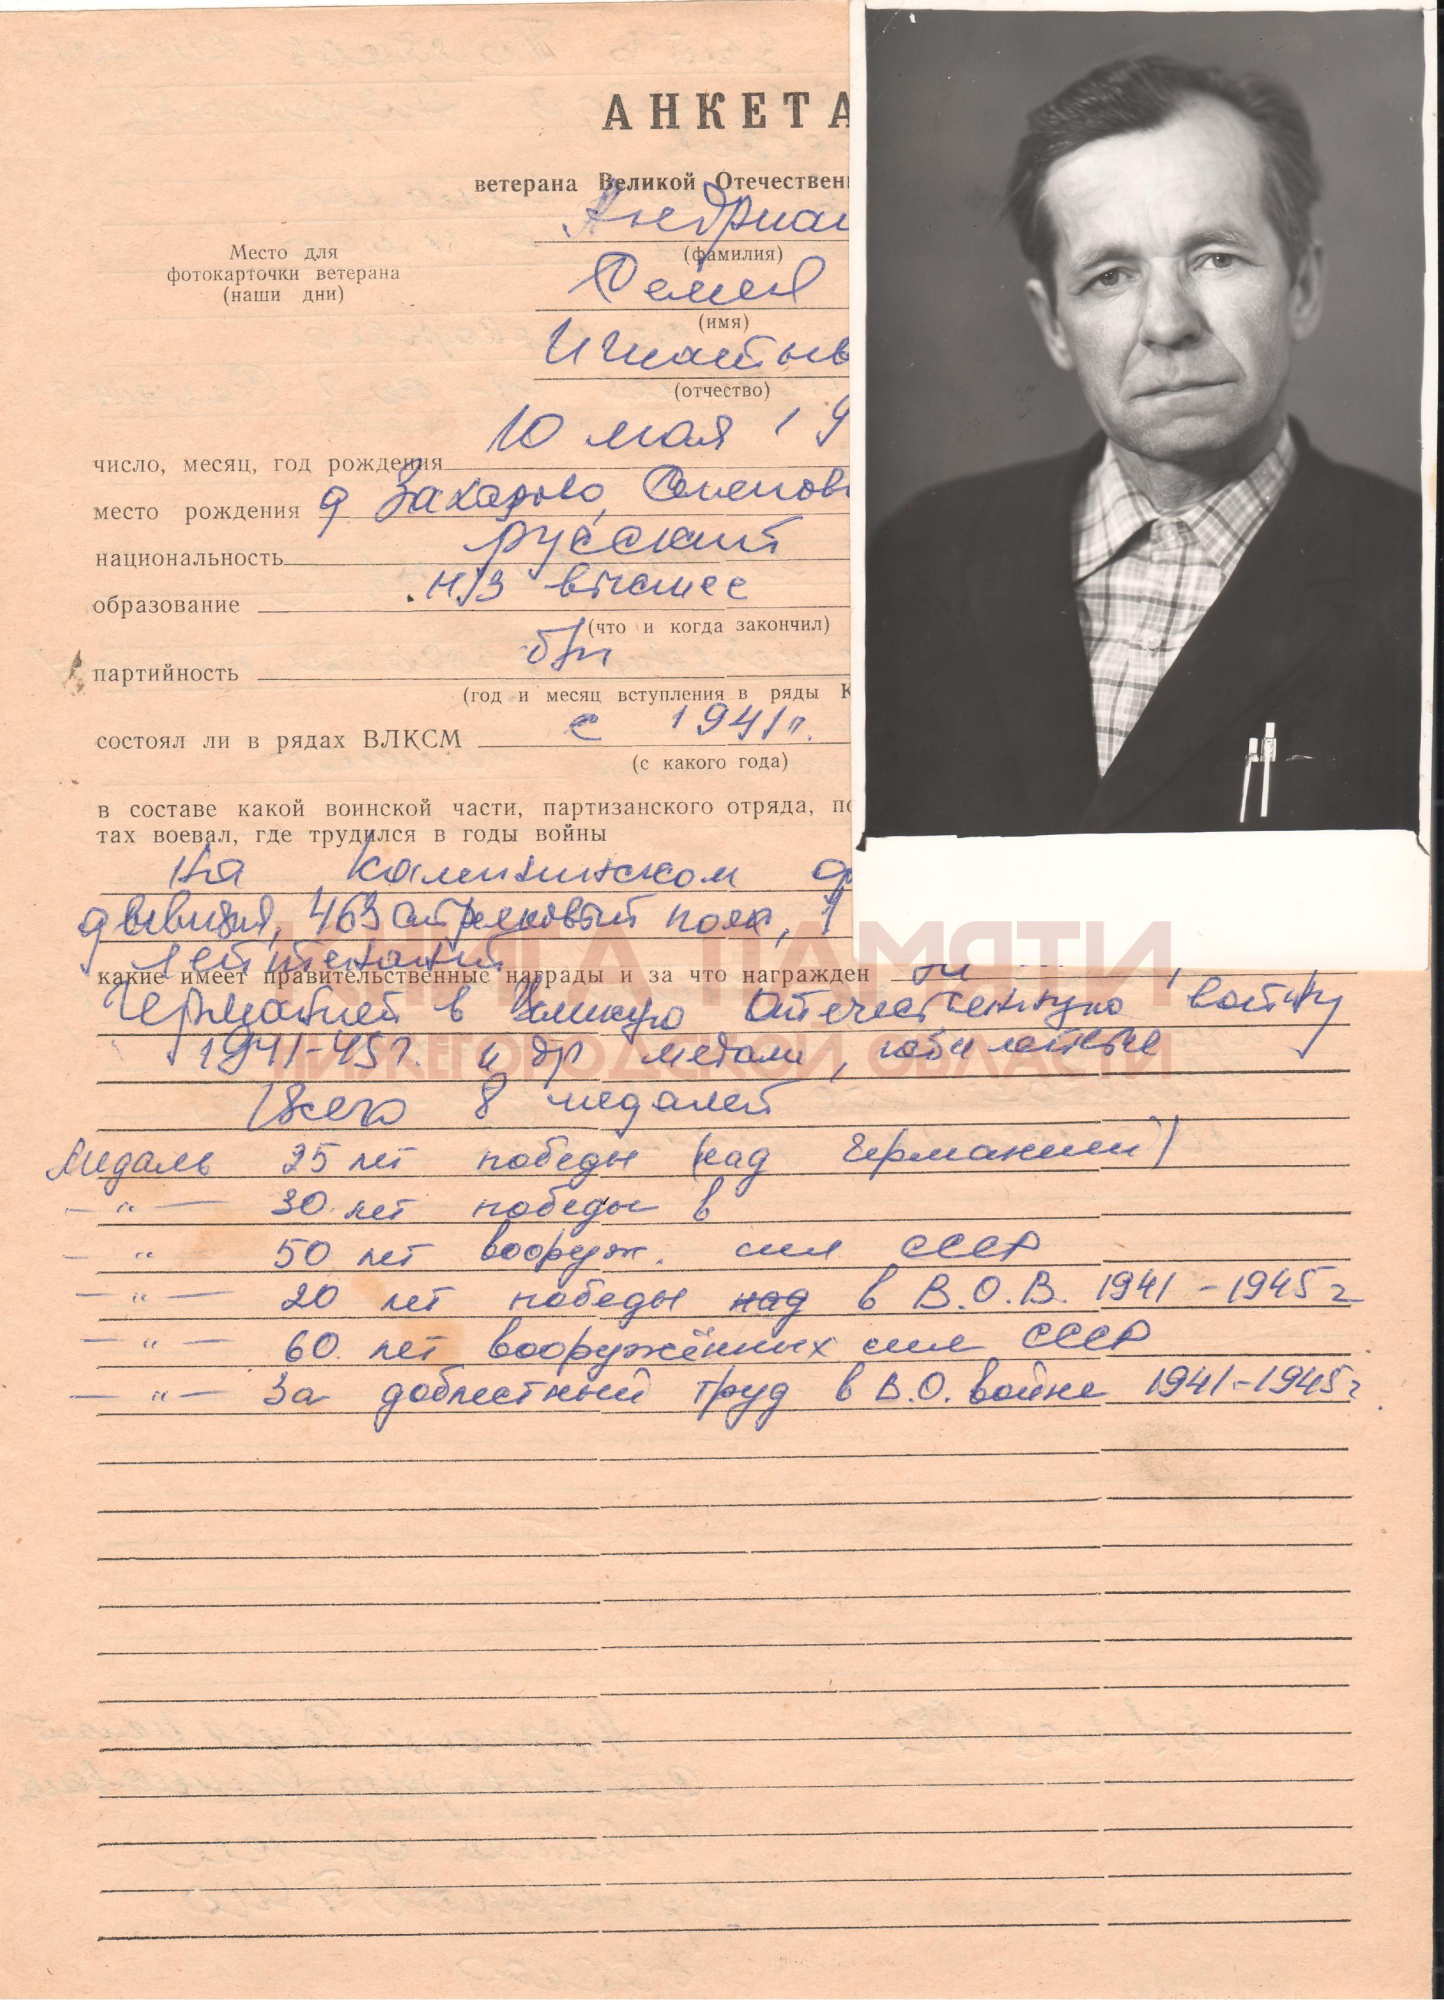 АНКЕТА
ветерана Великой Отечествен
Андриан
(фамилия)
Место для
фотокарточки ветерана
(наши дни)
Семен
(имя)
Игнатьев
(отчество)
число, месяц, год рождения 10 мая 19
место рождения д Захарово, Семенов
национальность русский
образование н/з высшее
(что и когда закончил)
партийность б/п
(год и месяц вступления в ряды К
состоял ли в рядах ВЛКСМ с 1941г.
(с какого года)
в составе какой воинской части, партизанского отряда, по
тах воевал, где трудился в годы войны
на Калининском ф
дивизия, 463 стрелковый полк,
лейтенант
какие имеет правительственные награды и за что награжден
Германией в Великую Отечественную войну
1941-45г. и др медали, юбилейные
Всего 8 медалей
Медаль 25 лет победы (над Германией)
—"— 30 лет победы в
—"— 50 лет вооруж. сил СССР
—"— 20 лет победы над в В.О.В. 1941-1945г
—"— 60 лет вооружённых сил СССР
—"— За доблестный труд в В.О. войне 1941-1945г.
КНИГА ПАМЯТИ
НИЖЕГОРОДСКОЙ ОБЛАСТИ